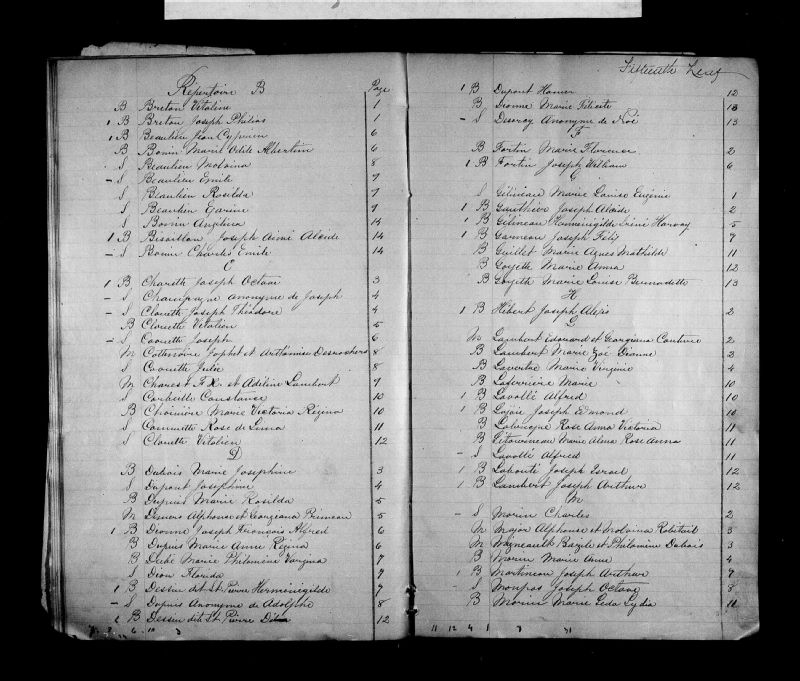 Répertoire B Page
B Breton Vitaline 1
1 B Breton Joseph Philias 1
1 B Beaulieu Jean Cyprien 6
B Bonin Marie Odile Albertine 6
S Beaulieu Malvina 8
- S Beaulieu Emile 7
S Beaulieu Rosilda 7
S Beaulieu Garine 9
S Bonin Angelina 14
1 B Bisaillon Joseph Aimé Alcide 14
- S Charles Emile 14
C
1 B Charette Joseph Octave 3
- S Champagne Anonyme de Joseph 4
- S Clouette Joseph Théodore 4
B Clouette Vitalien 5
- S Joseph 6
M Cotenoire Japhet et Arthémise Desrochers 8
S Julie 8
M Charest F.X. et Adéline Lambert 9
S Corbeille Constance 10
B Chouinière Marie Victoria Régina 10
S Rose de Lima 11
S Clouette Vitalien 12
D
B Dubois Marie Josephine 3
S Dupont Josephine 4
B Dupuis Marie Rosilda 5
M Demers Alphonse et Georgiana Primeau 5
1 B Dionne Joseph François Alfred 6
B Dupuis Marie Anne Régina 6
B Dubé Marie Philomène Virgina 7
S Dion Florida 9
1 B Dessin dit St. Pierre Herminigilde 7
- S Dupuis Anonyme de Adolphe 8
1 B Dessin dit St. Pierre 12
Fifteenth Leaf
1 B Dupont Homer 12
B Dionne Marie Félicité 13
- S Desroy Anonyme de Noé 13
F
B Fortin Marie Florence 2
1 B Fortin Joseph William 6
G
S Gélineau Marie Louise Eugénie 1
1 B Gauthier Joseph Alcide 2
1 B Gélineau Herminigilde Iréné Harvey 5
1 B Garneau Joseph Félix 9
B Guillet Marie Agnes Mathilde 11
B Goyette Marie Anna 12
B Goyette Marie Louise Bernadette 13
H
1 B Hébert Joseph Alexis 2
L
M Lambert Edouard et Georgiana Couture 2
B Lambert Marie Zoé Dionne 2
B Lavertue Marie Virginie 4
B Laferrière Marie 10
1 B Lavallé Alfred 10
1 B Lajoie Joseph Edmond 10
B Rose Anna Victoria 11
B Létourneau Marie Alma Rose Anna 11
- S Lavallé Alfred 11
1 B Joseph Israel 12
1 B Lambert Joseph Arthur 12
M
- S Morin Charles 2
M Major Alphonse et Malvina Robitail 3
M Bazile et Philomène Dubois 3
B Morin Marie Anne 4
1 B Martineau Joseph Arthur 9
- S Joseph Octave 8
B Morin Marie Leda Lydia 11